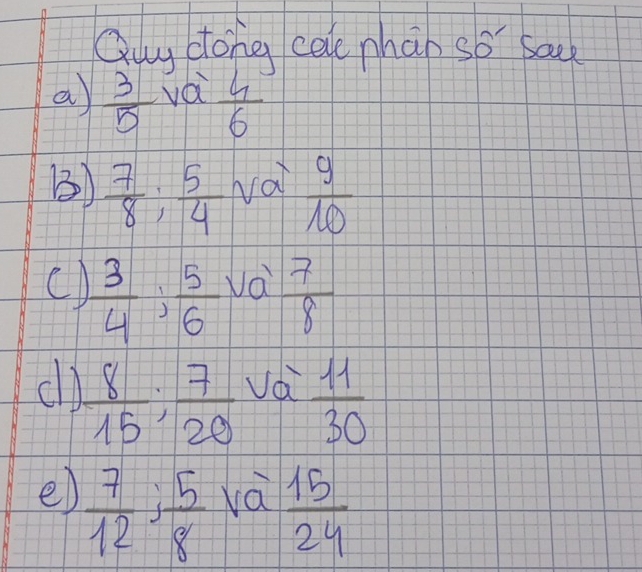 Quy đồng các phân số sau
a) 3/5 và 4/6
b) 7/8 ; 5/4 và 9/10
c) 3/4 ; 5/6 và 7/8
d) 8/15 ; 7/20 và 11/30
e) 7/12 ; 5/8 và 15/24